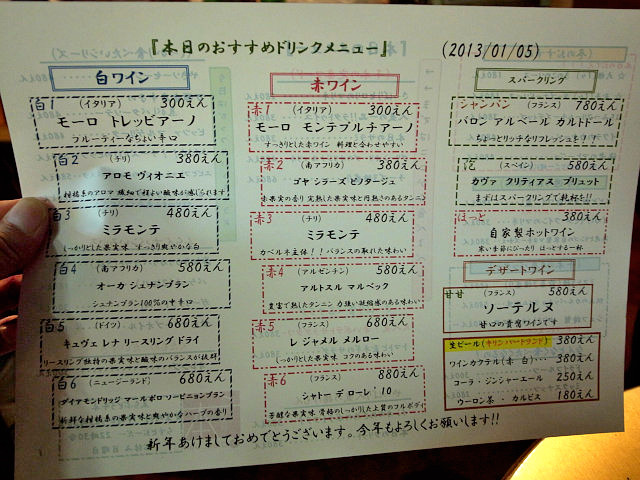 『本日のおすすめドリンクメニュー』
(2013/01/05)
白ワイン
白1 (イタリア) 300えん
モーロ トレッビアーノ
フルーティーなちょい辛口
白2 (チリ) 380えん
アロモ ヴィオニエ
柑橘系のアロマ 繊細で程よい酸味が感じられます
白3 (チリ) 480えん
ミラモンテ
しっかりとした果実味 すっきり爽やかな白
白4 (南アフリカ) 580えん
オーカ シュナンブラン
シュナンブラン100%の辛口
白5 (ドイツ) 680えん
キュヴェ レナ リースリング ドライ
リースリング独特の果実味と酸味のバランスが抜群
白6 (ニュージーランド) 680えん
ダイアモンドリッジ マールボロソービニョンブラン
新鮮な柑橘系の果実味と爽やかなハーブの香り
赤ワイン
赤1 (イタリア) 300えん
モーロ モンテプルチアーノ
すっきりとした赤ワイン 料理と合わせやすい
赤2 (南アフリカ) 380えん
ゴヤ シラーズ ピノタージュ
赤果実の香り 完熟した果実味と円熟さのあるタンニン
赤3 (チリ) 480えん
ミラモンテ
カベルネ主体!!バランスの取れた味わい
赤4 (アルゼンチン) 580えん
アルトスル マルベック
豊富で熟したタンニン 力強い凝縮感のある味わい
赤5 (フランス) 680えん
レ ジャメル メルロー
しっかりとした果実味 コクのあるる味わい
赤6 (フランス) 880えん
シャトー デ ローレ '10
芳醇な果実味 骨格のしっかりした上質のフルボディ
スパークリング
シャンパン (フランス) 780えん
バロン アルベール カルトドール
ちょっとリッチなリフレッシュを!!
泡 (スペイン) 580えん
カヴァ クリティアス ブリュット
まずはスパークリングで乾杯を!!
ほっと 380えん
自家製ホットワイン
寒い季節にぴったり ほっとする一杯
デザートワイン
甘甘 (フランス) 580えん
ソーテルヌ
甘口の貴腐ワインです
生ビール(キリンハートランド) 380えん
ワインカクテル(赤・白)… 380えん
コーラ・ジンジャーエール 250えん
ウーロン茶・カルピス 180えん
新年あけましておめでとうございます。今年もよろしくお願いします!!